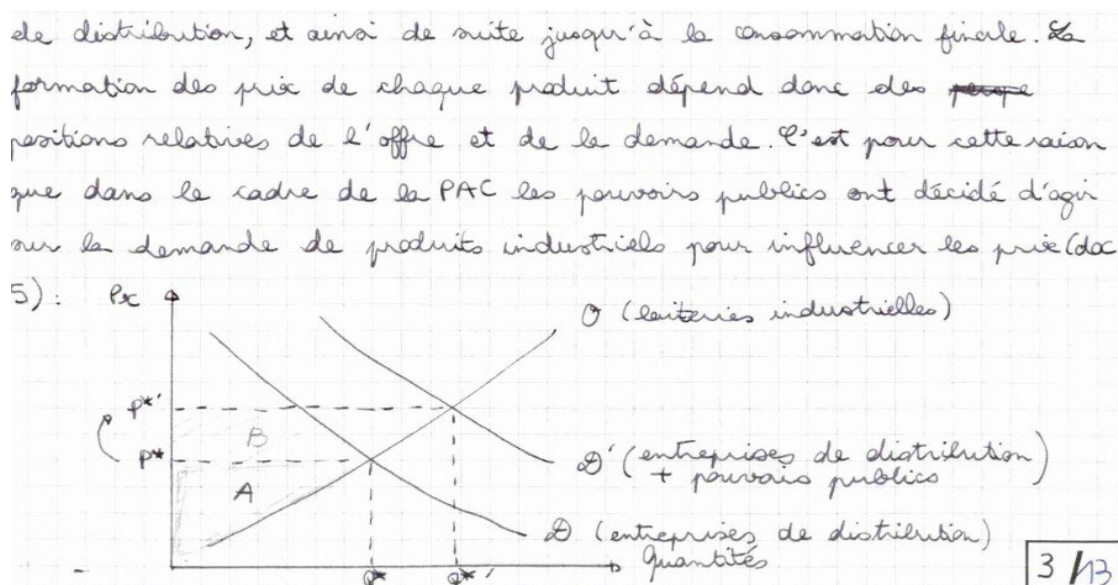 de distribution, et ainsi de suite jusqu'à la consommation finale. La
formation des prix de chaque produit dépend donc des
positions relatives de l'offre et de la demande. C'est pour cette raison
que dans le cadre de la PAC les pouvoirs publics ont décidé d'agir
sur la demande de produits industriels pour influencer les prix (doc
5) : Px
O (laiteries industrielles)
P*'
B
P*
D' (entreprises de distribution)
+ pouvoirs publics
A
D (entreprises de distribution)
Quantités
Q* Q*'
3/13